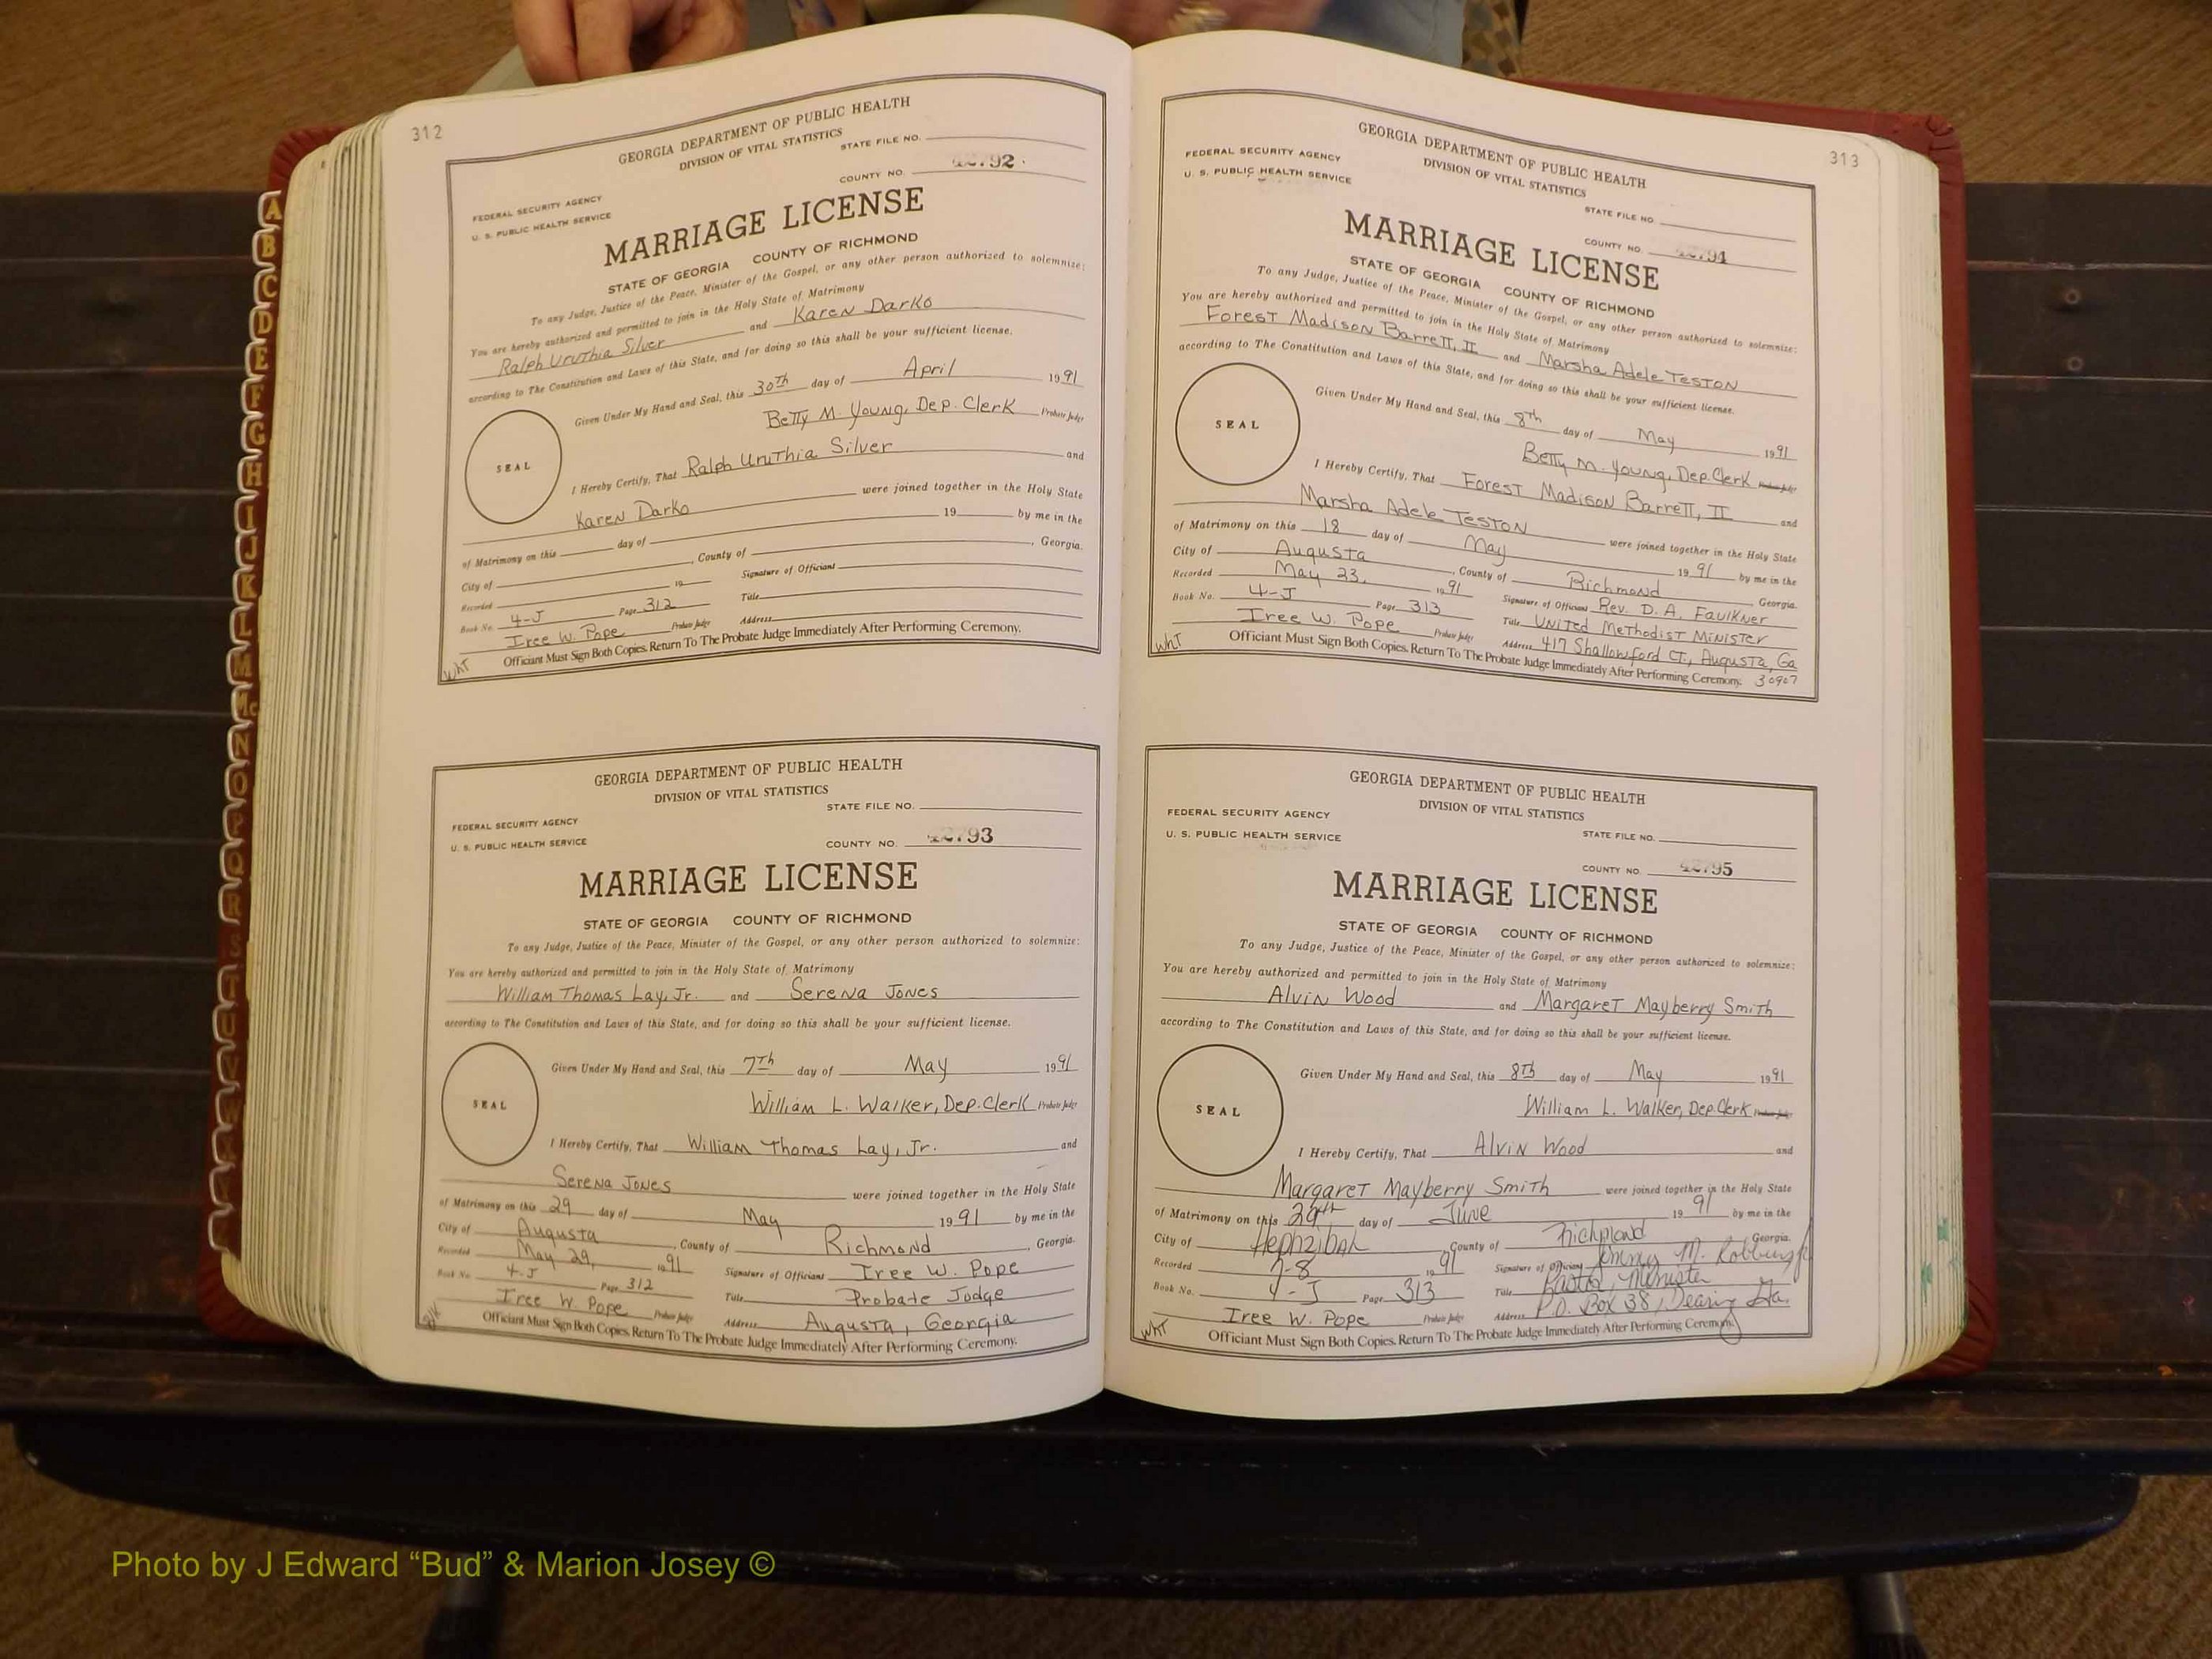 312
GEORGIA DEPARTMENT OF PUBLIC HEALTH
DIVISION OF VITAL STATISTICS
STATE FILE NO.
COUNTY NO. 42792
FEDERAL SECURITY AGENCY
U. S. PUBLIC HEALTH SERVICE
MARRIAGE LICENSE
STATE OF GEORGIA COUNTY OF RICHMOND
To any Judge, Justice of the Peace, Minister of the Gospel, or any other person authorized to solemnize:
You are hereby authorized and permitted to join in the Holy State of Matrimony
Ralph Uruthia Silver and Karen Darko
according to The Constitution and Laws of this State, and for doing so this shall be your sufficient license.
SEAL
Given Under My Hand and Seal, this 30th day of April 1991
Betty M. Young, Dep. Clerk Probate Judge
I Hereby Certify, That Ralph Uruthia Silver and
Karen Darko were joined together in the Holy State
of Matrimony on this day of 19 by me in the
City of , County of , Georgia.
Recorded 19 Signature of Officiant
Book No. 4-J Page 312 Title
Iree W. Pope Probate Judge Address
WHT Officiant Must Sign Both Copies. Return To The Probate Judge Immediately After Performing Ceremony.
GEORGIA DEPARTMENT OF PUBLIC HEALTH
DIVISION OF VITAL STATISTICS
STATE FILE NO.
FEDERAL SECURITY AGENCY
U. S. PUBLIC HEALTH SERVICE
COUNTY NO. 42793
MARRIAGE LICENSE
STATE OF GEORGIA COUNTY OF RICHMOND
To any Judge, Justice of the Peace, Minister of the Gospel, or any other person authorized to solemnize:
You are hereby authorized and permitted to join in the Holy State of Matrimony
William Thomas Lay, Jr. and Serena Jones
according to The Constitution and Laws of this State, and for doing so this shall be your sufficient license.
SEAL
Given Under My Hand and Seal, this 7th day of May 1991
William L. Walker, Dep. Clerk Probate Judge
I Hereby Certify, That William Thomas Lay, Jr. and
Serena Jones were joined together in the Holy State
of Matrimony on this 29 day of May 1991 by me in the
City of Augusta , County of Richmond , Georgia.
Recorded May 29, 1991 Signature of Officiant Iree W. Pope
Book No. 4-J Page 312 Title Probate Judge
Iree W. Pope Probate Judge Address Augusta, Georgia
Officiant Must Sign Both Copies. Return To The Probate Judge Immediately After Performing Ceremony.
313
GEORGIA DEPARTMENT OF PUBLIC HEALTH
DIVISION OF VITAL STATISTICS
FEDERAL SECURITY AGENCY
U. S. PUBLIC HEALTH SERVICE
STATE FILE NO.
COUNTY NO. 42794
MARRIAGE LICENSE
STATE OF GEORGIA COUNTY OF RICHMOND
To any Judge, Justice of the Peace, Minister of the Gospel, or any other person authorized to solemnize:
You are hereby authorized and permitted to join in the Holy State of Matrimony
Forest Madison Barrett, II and Marsha Adele Teston
according to The Constitution and Laws of this State, and for doing so this shall be your sufficient license.
SEAL
Given Under My Hand and Seal, this 8th day of May 1991
Betty M. Young, Dep. Clerk Probate Judge
I Hereby Certify, That Forest Madison Barrett, II and
Marsha Adele Teston were joined together in the Holy State
of Matrimony on this 18 day of May 1991 by me in the
City of Augusta , County of Richmond , Georgia.
Recorded May 23, 1991 Signature of Officiant Rev. D. A. Faulkner
Book No. 4-J Page 313 Title United Methodist Minister
Iree W. Pope Probate Judge Address 417 Shallowford Ct., Augusta, Ga
WHT Officiant Must Sign Both Copies. Return To The Probate Judge Immediately After Performing Ceremony. 30907
GEORGIA DEPARTMENT OF PUBLIC HEALTH
DIVISION OF VITAL STATISTICS
FEDERAL SECURITY AGENCY
U. S. PUBLIC HEALTH SERVICE
STATE FILE NO.
COUNTY NO. 42795
MARRIAGE LICENSE
STATE OF GEORGIA COUNTY OF RICHMOND
To any Judge, Justice of the Peace, Minister of the Gospel, or any other person authorized to solemnize:
You are hereby authorized and permitted to join in the Holy State of Matrimony
Alvin Wood and Margaret Mayberry Smith
according to The Constitution and Laws of this State, and for doing so this shall be your sufficient license.
SEAL
Given Under My Hand and Seal, this 8th day of May 1991
William L. Walker, Dep. Clerk Probate Judge
I Hereby Certify, That Alvin Wood and
Margaret Mayberry Smith were joined together in the Holy State
of Matrimony on this 29th day of June 1991 by me in the
City of Hephzibah , County of Richmond , Georgia.
Recorded 7-8 1991 Signature of Officiant M.
Book No. 4-J Page 313 Title Pastor, Minister
Iree W. Pope Probate Judge Address P.O. Box 38, Dearing Ga.
WHT Officiant Must Sign Both Copies. Return To The Probate Judge Immediately After Performing Ceremony.
A
B
C
D
E
F
G
H
I
J
K
L
M
Mc
N
O
P
Q
R
S
T
U
V
W
Photo by J Edward “Bud” & Marion Josey ©